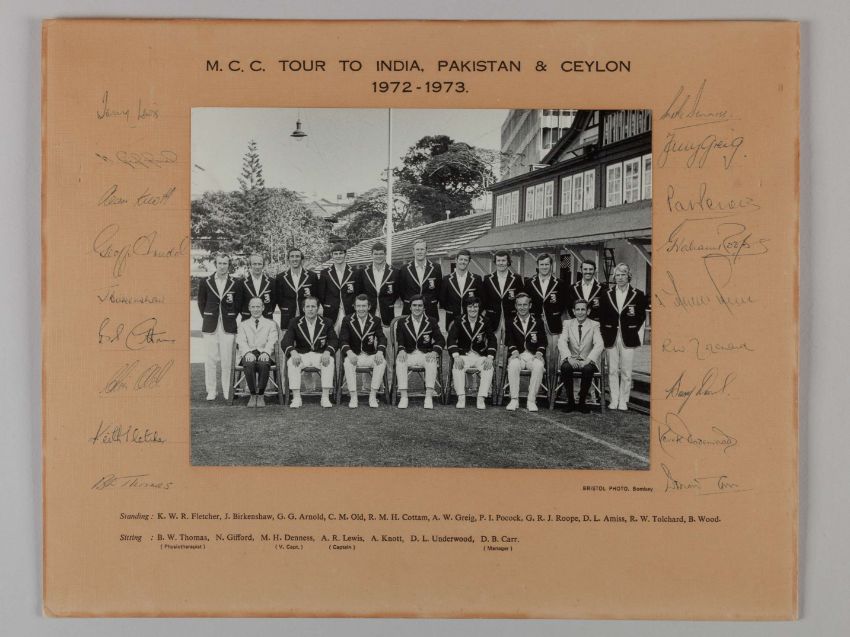 M. C. C. TOUR TO INDIA, PAKISTAN & CEYLON
1972-1973.
Tony Lewis
N. Gifford
Alan Knott
Geoff Arnold
J Birkenshaw
Bob Cottam
Chris Old
Keith Fletcher
B W Thomas
Mike Denness.
Tony Greig.
Pat Pocock
Graham Roope
Barry Wood.
Derek Underwood
BRISTOL PHOTO. Bombay
Standing : K. W. R. Fletcher, J. Birkenshaw, G. G. Arnold, C. M. Old, R. M. H. Cottam, A. W. Greig, P. I. Pocock, G. R. J. Roope, D. L. Amiss, R. W. Tolchard, B. Wood.
Sitting : B. W. Thomas, N. Gifford, M. H. Denness, A. R. Lewis, A. Knott, D. L. Underwood, D. B. Carr.
( Physiotherapist ) ( V. Capt. ) ( Captain ) ( Manager )